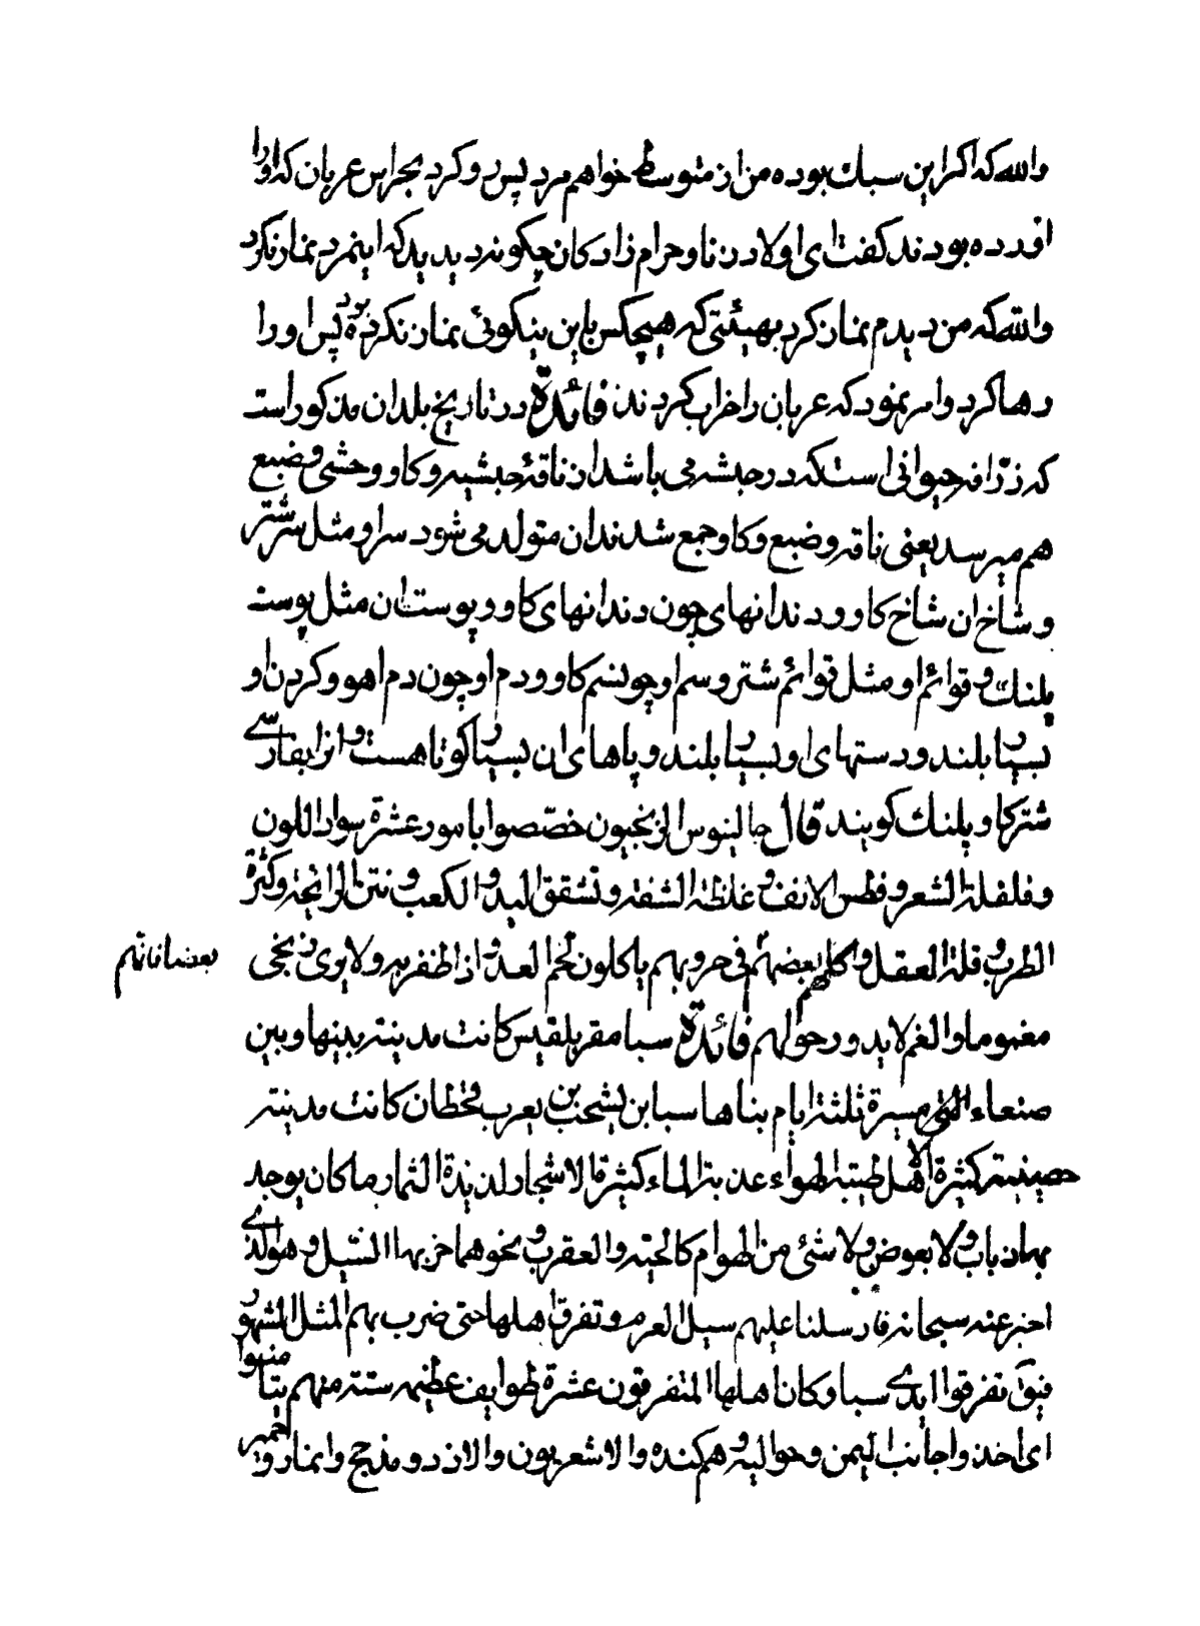 والله که اکر این سبك بوده من ازن متوسط خواهم مرد پس رو کرد بحراس عربان که اورا
اورده بودند کفت ای اولاد زنا و حرام زاد کان چکونه دیدید که اینمرد نماز نکرد
والله که من دیدم نماز کرد بهیئتی که هیچکس باین نیکوئی نماز نکرده بود پس اورا
رها کرد وامر نمود که عربان را خراب کردند فائدة در تاریخ بلدان مذکور است
که زرّافه حیوانی است که در حبشه می باشد از ناقهٔ حبشیه و کاو وحشی و ضبع
هم میرسد یعنی ناقه و ضبع و کاو جمع شدند ازان متولد می شود سر او مثل سر شتر
و شاخ ان شاخ کاو و دندانهای چون دندانهای کاو و پوست ان مثل پوست
پلنك و قوائم او مثل قوائم شتر و سم او چون سم کاو و دم او چون دم اهو و کردن او
بسیار بلند و دستهای او بسیار بلند و پاهای ان بسیار کوتاهست و انرا بفارسی
شتر کاو پلنك کویند قال جالینوس الزنجیون خصّصوا بامور عشرة سواد اللون
و فلفلة الشعر و فطس الانف و غلظة الشفة و تشقق الید و الکعب و نتن الرائحة و کثرة
الطرب و قلة العقل و اکلهم بعضهم فی حروبهم یاکلون لحم العدو اذا ظفر به و لا یری زنجی
مغموما و الغم لا یدور حولهم فائدة سبا مقر بلقیس کانت مدینة بینها و بین
صنعاء مسیرة ثلثة ایام بناها سبا بن یشجب بن یعرب قحطان کانت مدینة
حصینة کثیرة الاهل طیبة الهواء عذبة الماء کثیرة الاشجار لذیذة الثمار ما کان یوجد
بها ذباب و لا بعوض و لا شئ من الهوام کالحیة و العقرب و نحوهما خربها السیل و هو الذی
اخبر عنه سبحانه فارسلنا علیهم سیل العرم و تفرق اهلها حتی ضرب بهم المثل المشهور
فیق تفرقوا ایدی سبا و کان اهلها المتفرقون عشرة طوایف عظیمة ستة منهم تیامنوا
ای اخذوا جانب الیمن و حوالیه و هم کنده و الاشعریون و الازد و مذحج و انمار و حمیر